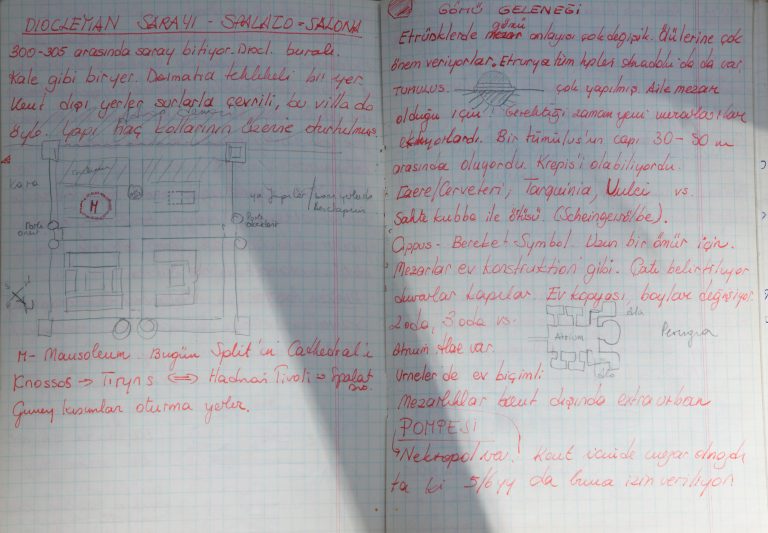 DIOCLEMAN SARAYI - SPALATO = SALONA
300-305 arasında saray bitiyor. Diocl. buralı.
Kale gibi bir yer. Dalmatia tehlikeli bir yer.
Kent dışı yerler surlarla çevrili, bu villa da
öyle. Yapı haç kollarının üzerine oturtulmuş.
Kara
M
Porta
Porta
M- Mausoleum. Bugün Split'in Cathedral'i
Knossos → Tiryns ⟺ Hadrian Tivoli → Spalat
Guney kısımlar oturma yerler.
GÖMÜ GELENEĞİ
Etrüsklerde gömü anlayışı çok değişik. Ölülerine çok
önem veriyorlar. Etrurya tüm tipleri Anadolu da da var
TUMULUS. çok yapılmış. Aile mezar
olduğu için! Gerektiği zaman yeni
Bir tümülüs'un çapı 30-50 m
arasında oluyordu. Krepis'i olabiliyordu.
Caere/Cerveteri, Tarquinia, Vulci vs.
Sahte kubbe ile örtüsü. (Scheingewölbe).
Cippus - Bereket-Symbol. Uzun bir ömür için.
Mezarlar ev konstruktion gibi. Çatı belirtiliyor
duvarlar kapılar. Ev kopyası, boylar değişiyor.
2 oda, 3 oda vs.
Atrium
Ala
Perugia
Atrium Alae var.
Ala
Urneler de ev biçimli
Mezarlıklar kent dışında extraurban
POMPESİ
Nekropol var. Kent icinde mezar olmazdı
ta ki 5/6 yy da buna izin veriliyor